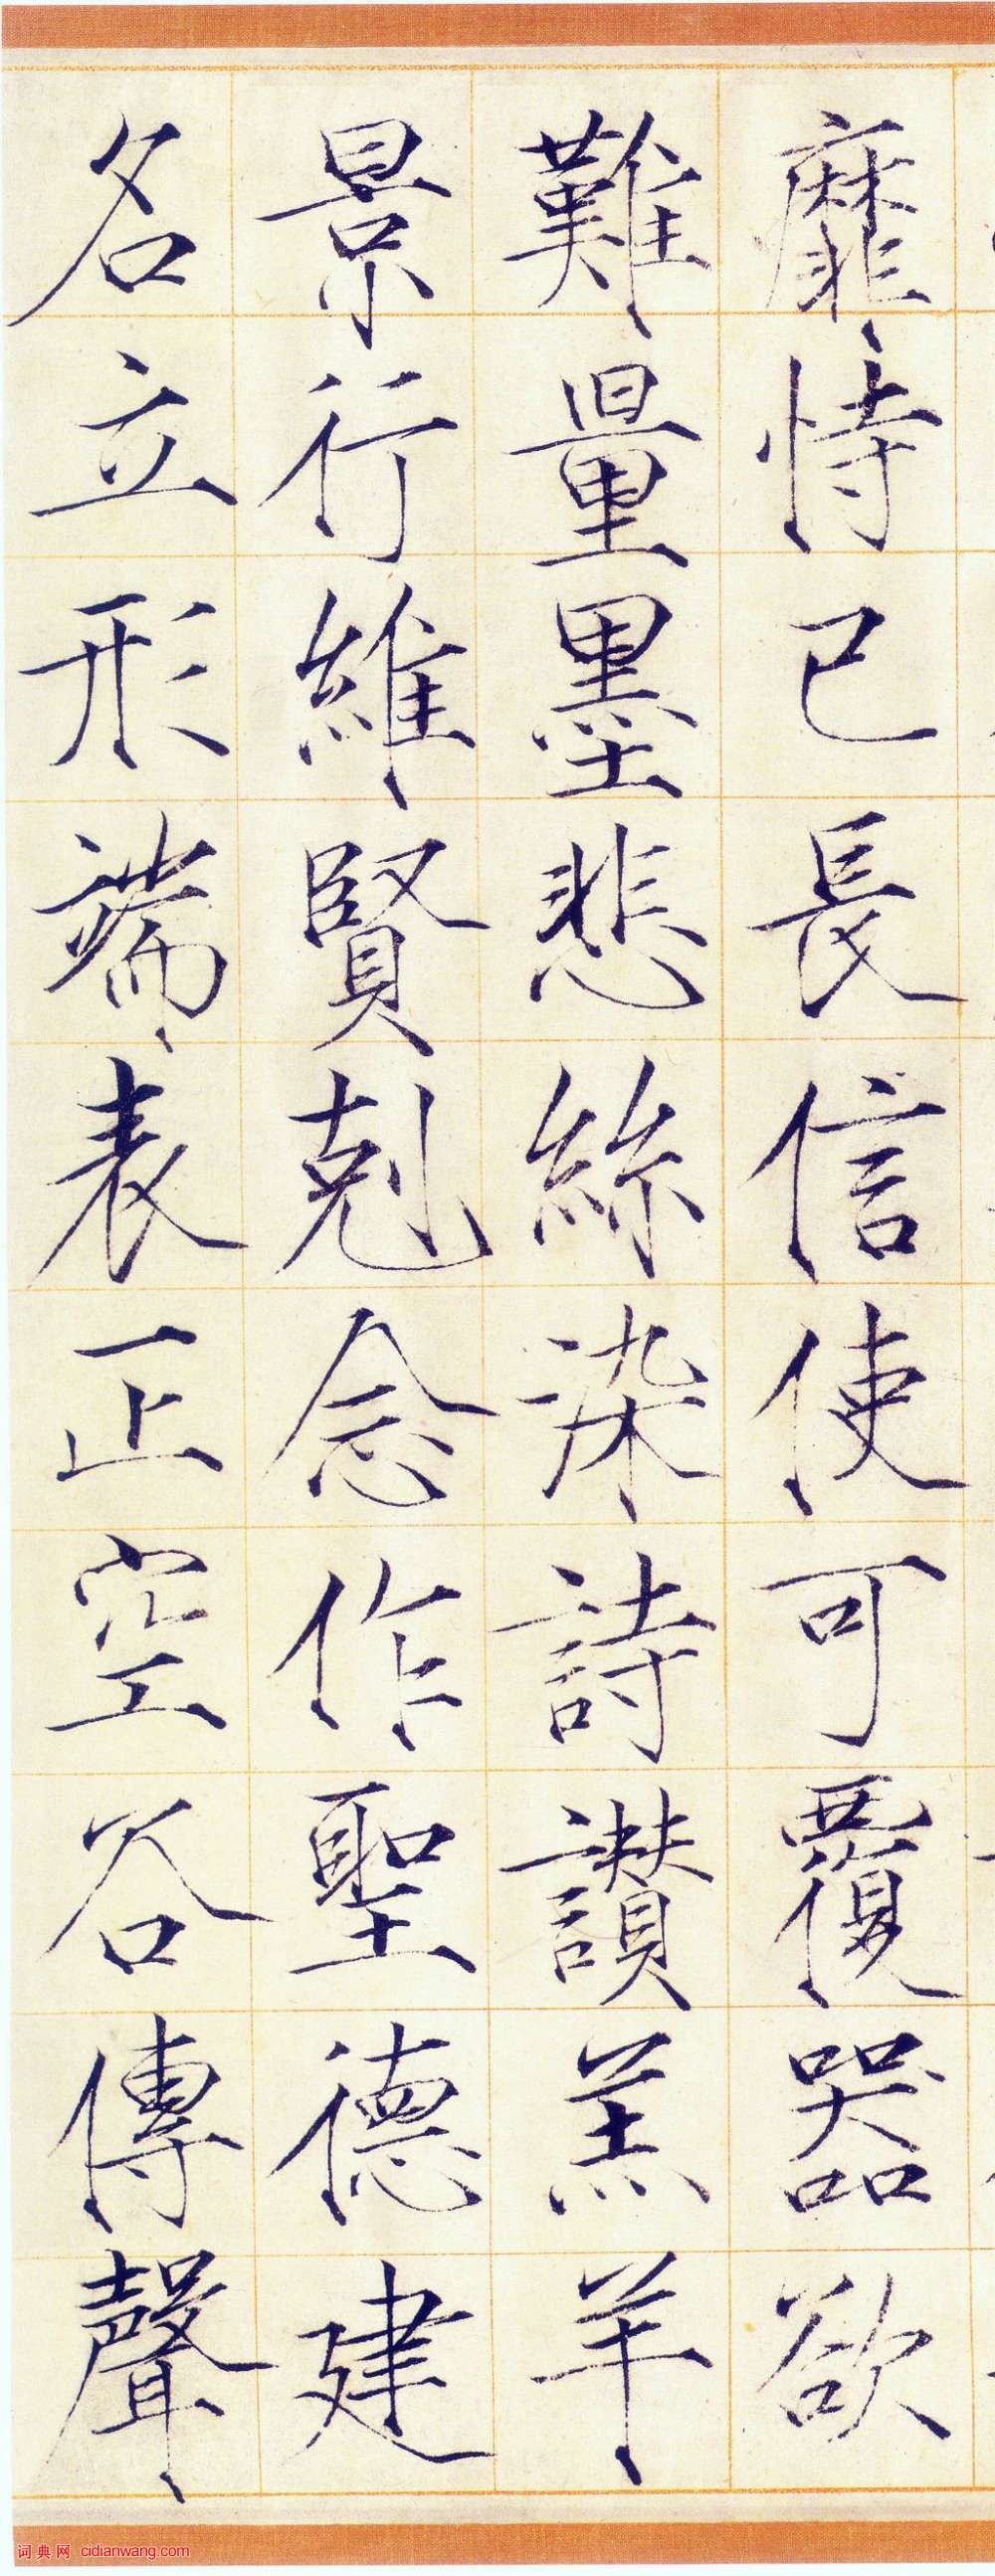 靡恃己長信使可覆器欲
難量墨悲絲染詩讚羔羊
景行維賢剋念作聖德建
名立形端表正空谷傳聲
词典网 cidianwang.com